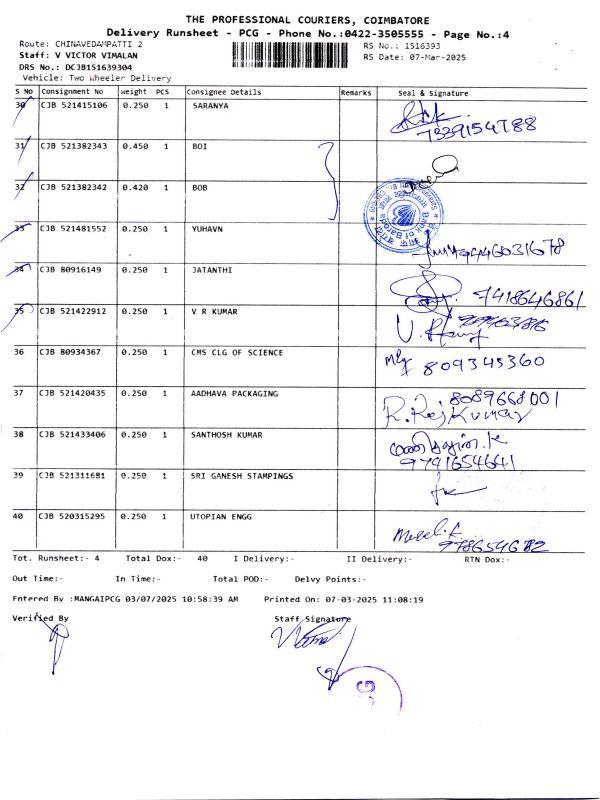 THE PROFESSIONAL COURIERS, COIMBATORE
Delivery Runsheet - PCG - Phone No.:0422-3505555 - Page No.:4
Route: CHINAVEDAMPATTI 2
RS No.: 1516393
Staff: V VICTOR VIMALAN
RS Date: 07-Mar-2025
DRS No.: DCJB151639304
Vehicle: Two Wheeler Delivery
S No Consignment No Weight PCS Consignee Details Remarks Seal & Signature
30 CJB 521415106 0.250 1 SARANYA
7339154788
31 CJB 521382343 0.450 1 BOI
32 CJB 521382342 0.420 1 BOB
Bank of Baroda
33 CJB 521481552 0.250 1 YUHAVN
9446031678
34 CJB 80916149 0.250 1 JATANTHI
9418646861
35 CJB 521422912 0.250 1 V R KUMAR
36 CJB 80934367 0.250 1 CMS CLG OF SCIENCE
809345360
37 CJB 521420435 0.250 1 AADHAVA PACKAGING
8089668001
R. Raj Kumar
38 CJB 521433406 0.250 1 SANTHOSH KUMAR
9791654641
39 CJB 521311681 0.250 1 SRI GANESH STAMPINGS
40 CJB 520315295 0.250 1 UTOPIAN ENGG
9786546782
Tot. Runsheet:- 4 Total Dox:- 40 I Delivery:- II Delivery:- RTN Dox:-
Out Time:- In Time:- Total POD:- Delvy Points:-
Entered By :MANGAIPCG 03/07/2025 10:58:39 AM Printed On: 07-03-2025 11:08:19
Verified By Staff Signature